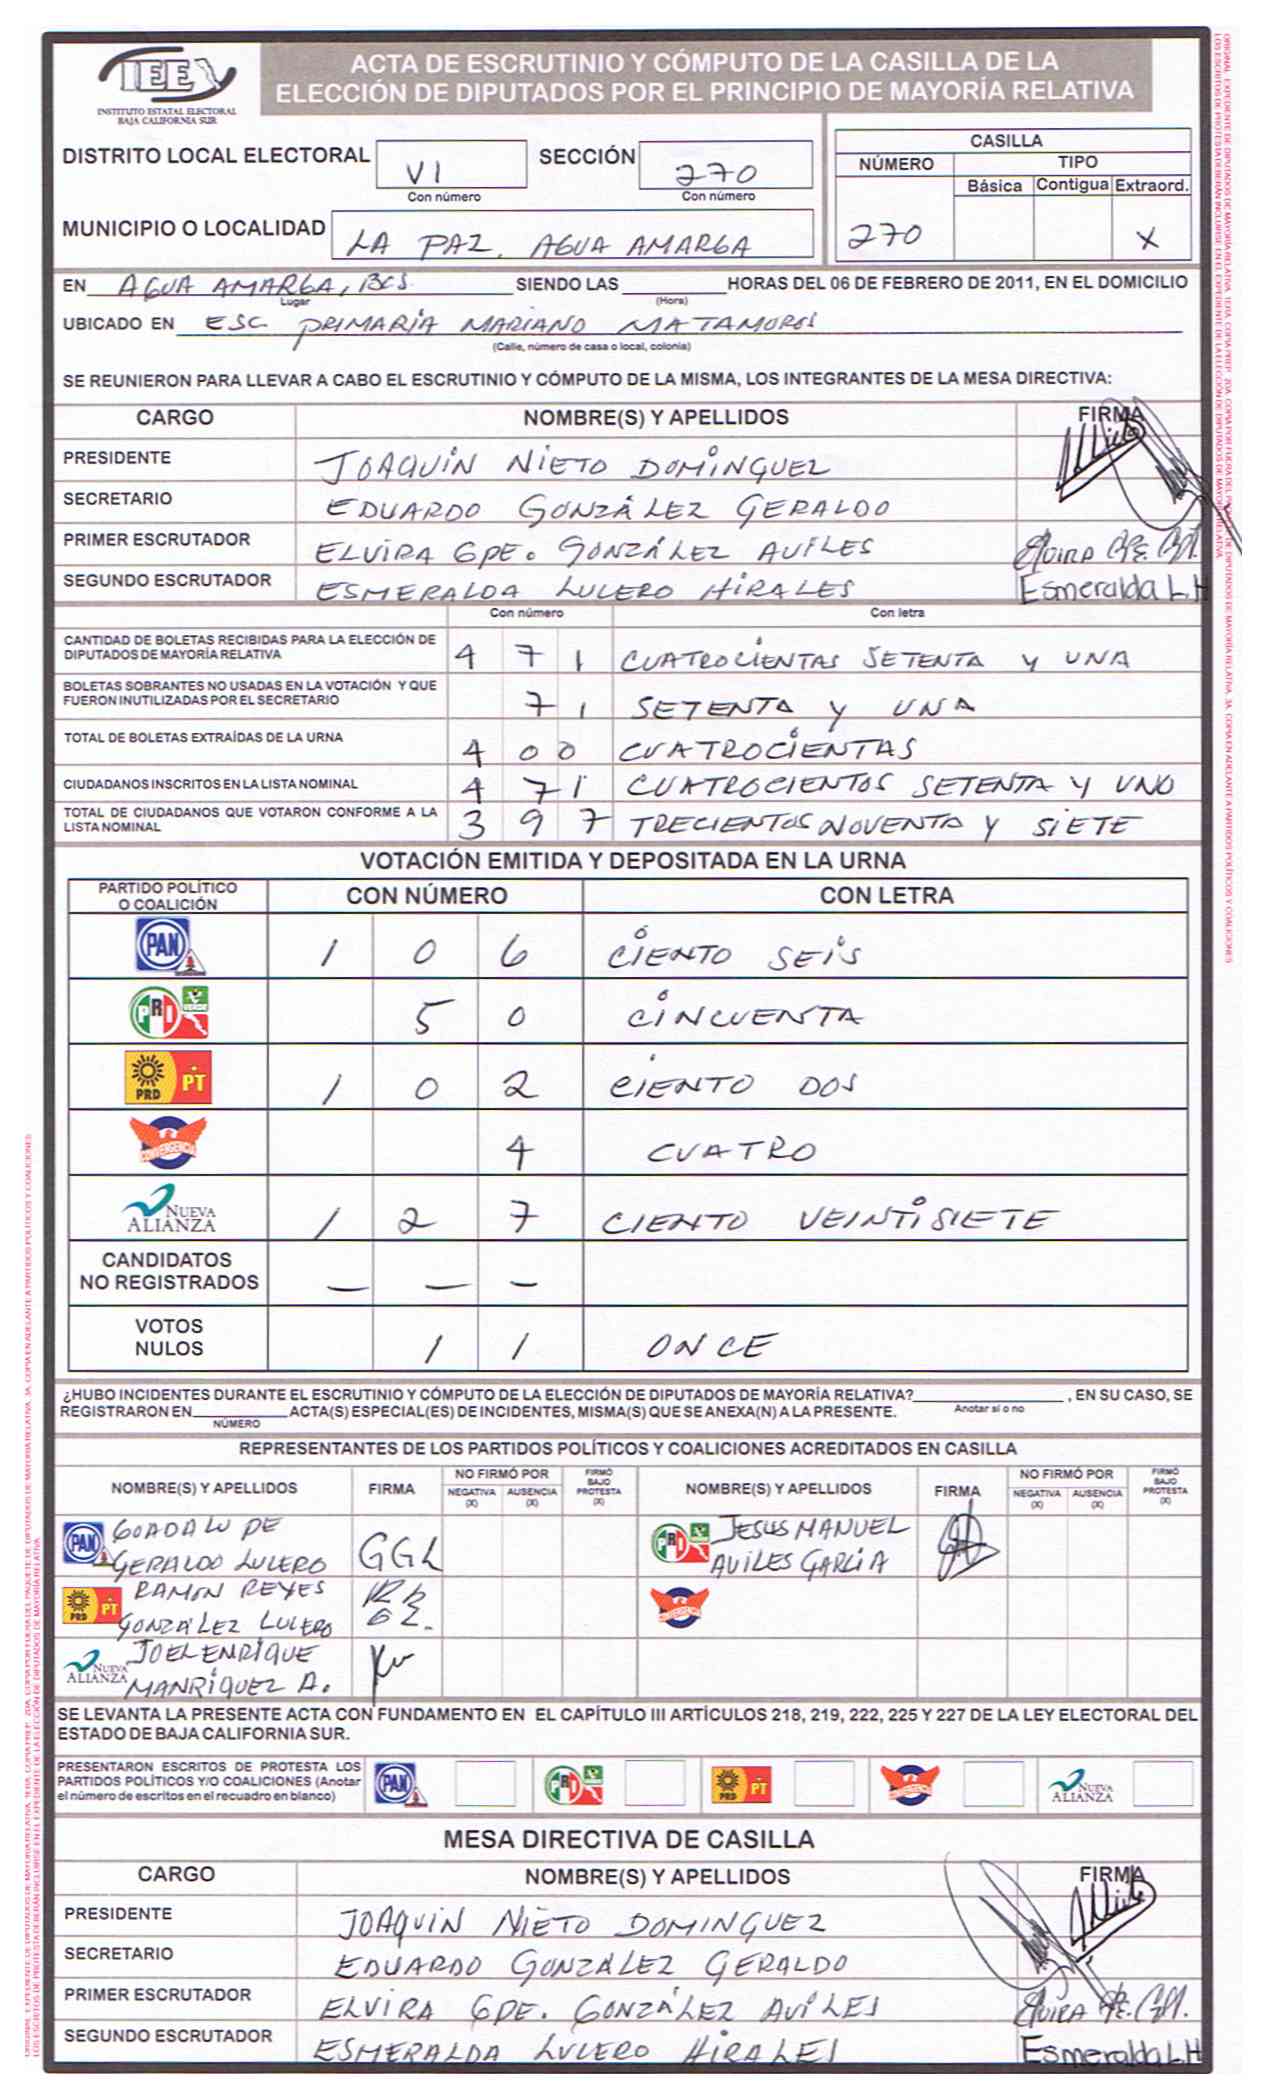 IEEX
INSTITUTO ESTATAL ELECTORAL
BAJA CALIFORNIA SUR
ACTA DE ESCRUTINIO Y CÓMPUTO DE LA CASILLA DE LA
ELECCIÓN DE DIPUTADOS POR EL PRINCIPIO DE MAYORÍA RELATIVA
DISTRITO LOCAL ELECTORAL VI SECCIÓN 270
Con número Con número
MUNICIPIO O LOCALIDAD LA PAZ, AGUA AMARGA
CASILLA
NÚMERO TIPO
Básica Contigua Extraord.
270 X
EN AGUA AMARGA, BCS. SIENDO LAS HORAS DEL 06 DE FEBRERO DE 2011, EN EL DOMICILIO
Lugar (Hora)
UBICADO EN ESC PRIMARIA MARIANO MATAMOROS
(Calle, número de casa o local, colonia)
SE REUNIERON PARA LLEVAR A CABO EL ESCRUTINIO Y CÓMPUTO DE LA MISMA, LOS INTEGRANTES DE LA MESA DIRECTIVA:
CARGO NOMBRE(S) Y APELLIDOS FIRMA
PRESIDENTE JOAQUIN NIETO DOMINGUEZ
SECRETARIO EDUARDO GONZÁLEZ GERALDO
PRIMER ESCRUTADOR ELVIRA GPE. GONZÁLEZ AVILES
SEGUNDO ESCRUTADOR ESMERALDA LUCERO HIRALES Esmeralda L.H
Con número Con letra
CANTIDAD DE BOLETAS RECIBIDAS PARA LA ELECCIÓN DE
DIPUTADOS DE MAYORÍA RELATIVA 4 7 1 CUATROCIENTAS SETENTA Y UNA
BOLETAS SOBRANTES NO USADAS EN LA VOTACIÓN Y QUE
FUERON INUTILIZADAS POR EL SECRETARIO 7 1 SETENTA Y UNA
TOTAL DE BOLETAS EXTRAÍDAS DE LA URNA 4 0 0 CUATROCIENTAS
CIUDADANOS INSCRITOS EN LA LISTA NOMINAL 4 7 1 CUATROCIENTOS SETENTA Y UNO
TOTAL DE CIUDADANOS QUE VOTARON CONFORME A LA
LISTA NOMINAL 3 9 7 TRECIENTOS NOVENTA Y SIETE
VOTACIÓN EMITIDA Y DEPOSITADA EN LA URNA
PARTIDO POLÍTICO
O COALICIÓN CON NÚMERO CON LETRA
PAN 1 0 6 CIENTO SEIS
PRI VERDE 5 0 CINCUENTA
PRD PT 1 0 2 CIENTO DOS
CONVERGENCIA 4 CUATRO
NUEVA
ALIANZA 1 2 7 CIENTO VEINTISIETE
CANDIDATOS
NO REGISTRADOS — — —
VOTOS
NULOS 1 1 ONCE
¿HUBO INCIDENTES DURANTE EL ESCRUTINIO Y CÓMPUTO DE LA ELECCIÓN DE DIPUTADOS DE MAYORÍA RELATIVA? , EN SU CASO, SE
Anotar sí o no
REGISTRARON EN ACTA(S) ESPECIAL(ES) DE INCIDENTES, MISMA(S) QUE SE ANEXA(N) A LA PRESENTE.
NÚMERO
REPRESENTANTES DE LOS PARTIDOS POLÍTICOS Y COALICIONES ACREDITADOS EN CASILLA
NOMBRE(S) Y APELLIDOS FIRMA NO FIRMÓ POR NEGATIVA (X) AUSENCIA (X) FIRMÓ BAJO PROTESTA (X) NOMBRE(S) Y APELLIDOS FIRMA NO FIRMÓ POR NEGATIVA (X) AUSENCIA (X) FIRMÓ BAJO PROTESTA (X)
PAN GUADALUPE
GERALDO LUCERO GGL
PRI JESUS MANUEL
AVILES GARCIA
PRD PT RAMON REYES
GONZÁLEZ LUCERO
CONVERGENCIA
NUEVA
ALIANZA JOEL ENRIQUE
MANRÍQUEZ A.
SE LEVANTA LA PRESENTE ACTA CON FUNDAMENTO EN EL CAPÍTULO III ARTÍCULOS 218, 219, 222, 225 Y 227 DE LA LEY ELECTORAL DEL
ESTADO DE BAJA CALIFORNIA SUR.
PRESENTARON ESCRITOS DE PROTESTA LOS
PARTIDOS POLÍTICOS Y/O COALICIONES (Anotar
el número de escritos en el recuadro en blanco)
PAN PRI PRD PT CONVERGENCIA NUEVA ALIANZA
MESA DIRECTIVA DE CASILLA
CARGO NOMBRE(S) Y APELLIDOS FIRMA
PRESIDENTE JOAQUIN NIETO DOMINGUEZ
SECRETARIO EDUARDO GONZÁLEZ GERALDO
PRIMER ESCRUTADOR ELVIRA GPE. GONZÁLEZ AVILES
SEGUNDO ESCRUTADOR ESMERALDA LUCERO HIRALES Esmeralda L.H